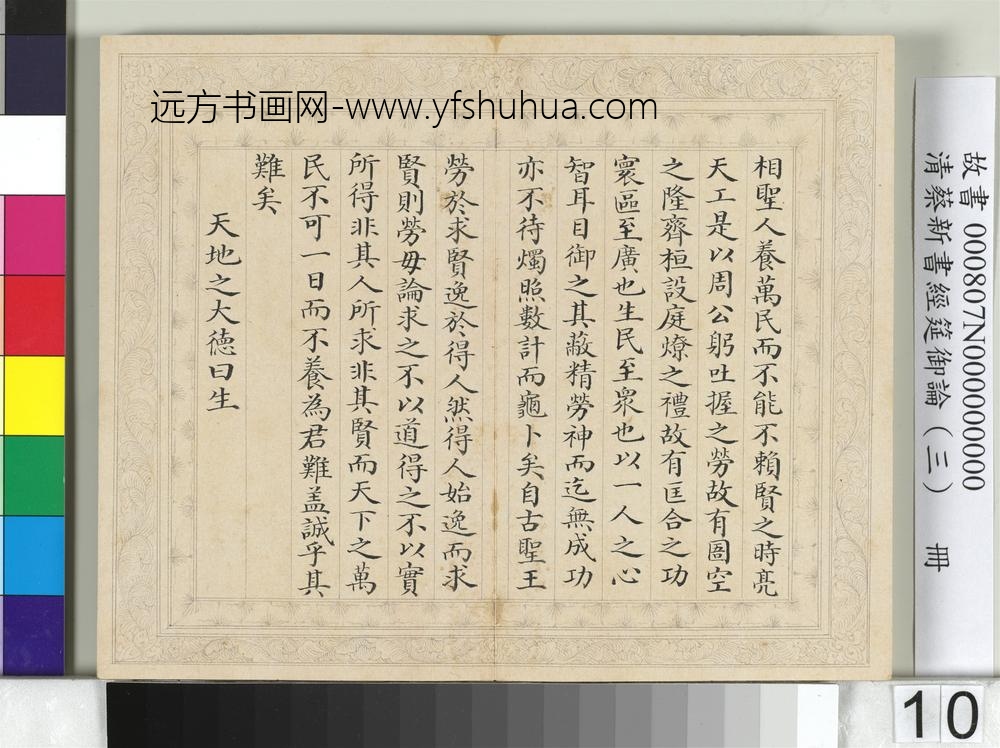 远方书画网-www.yfshuhua.com
相聖人養萬民而不能不賴賢之時亮
天工是以周公躬吐握之勞故有圄空
之隆齊桓設庭燎之禮故有匡合之功
寰區至廣也生民至衆也以一人之心
智耳目御之其蔽精勞神而迄無成功
亦不待燭照數計而龜卜矣自古聖王
勞於求賢逸於得人然得人始逸而求
賢則勞毋論求之不以道得之不以實
所得非其人所求非其賢而天下之萬
民不可一日而不養為君難盖誠乎其
難矣
天地之大德曰生
故書 000807N000000000
清蔡新書經筵御論（三） 冊
10